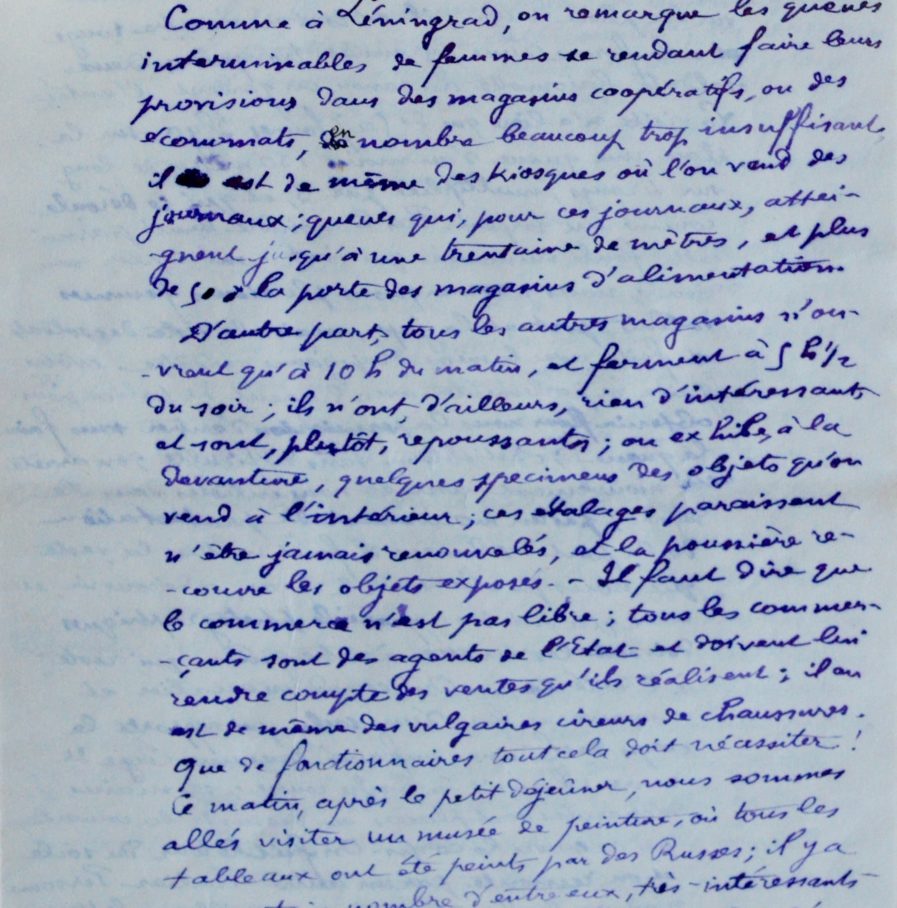 Comme à Léningrad, on remarque les queues
interminables de femmes se rendant faire leurs
provisions dans des magasins coopératifs, ou des
économats, en nombre beaucoup trop insuffisant,
il est de même des kiosques où l'on vend des
journaux; queues qui, pour ces journaux, attei-
-gnent jusqu'à une trentaine de mètres, et plus
de 50 à la porte des magasins d'alimentation.
D'autre part, tous les autres magasins n'ou-
vrent qu'à 10 h du matin, et ferment à 5 h 1/2
du soir; ils n'ont d'ailleurs, rien d'intéressants
et sont, plutôt, repoussants; on exhibe, à la
devanture, quelques specimens des objets qu'on
vend à l'intérieur; ces étalages paraissent
n'être jamais renouvelés, et la poussière re-
-couvre les objets exposés. - Il faut dire que
le commerce n'est pas libre; tous les commer-
-çants sont des agents de l'Etat et doivent lui
rendre compte des ventes qu'ils réalisent; il en
est de même des vulgaires cireurs de chaussures.
Que de fonctionnaires tout cela doit nécessiter!
Ce matin, après le petit déjeûner, nous sommes
allés visiter un musée de peinture, où tous les
tableaux ont été peints par des Russes; il y a
nombre d'entre eux, très-intéressants